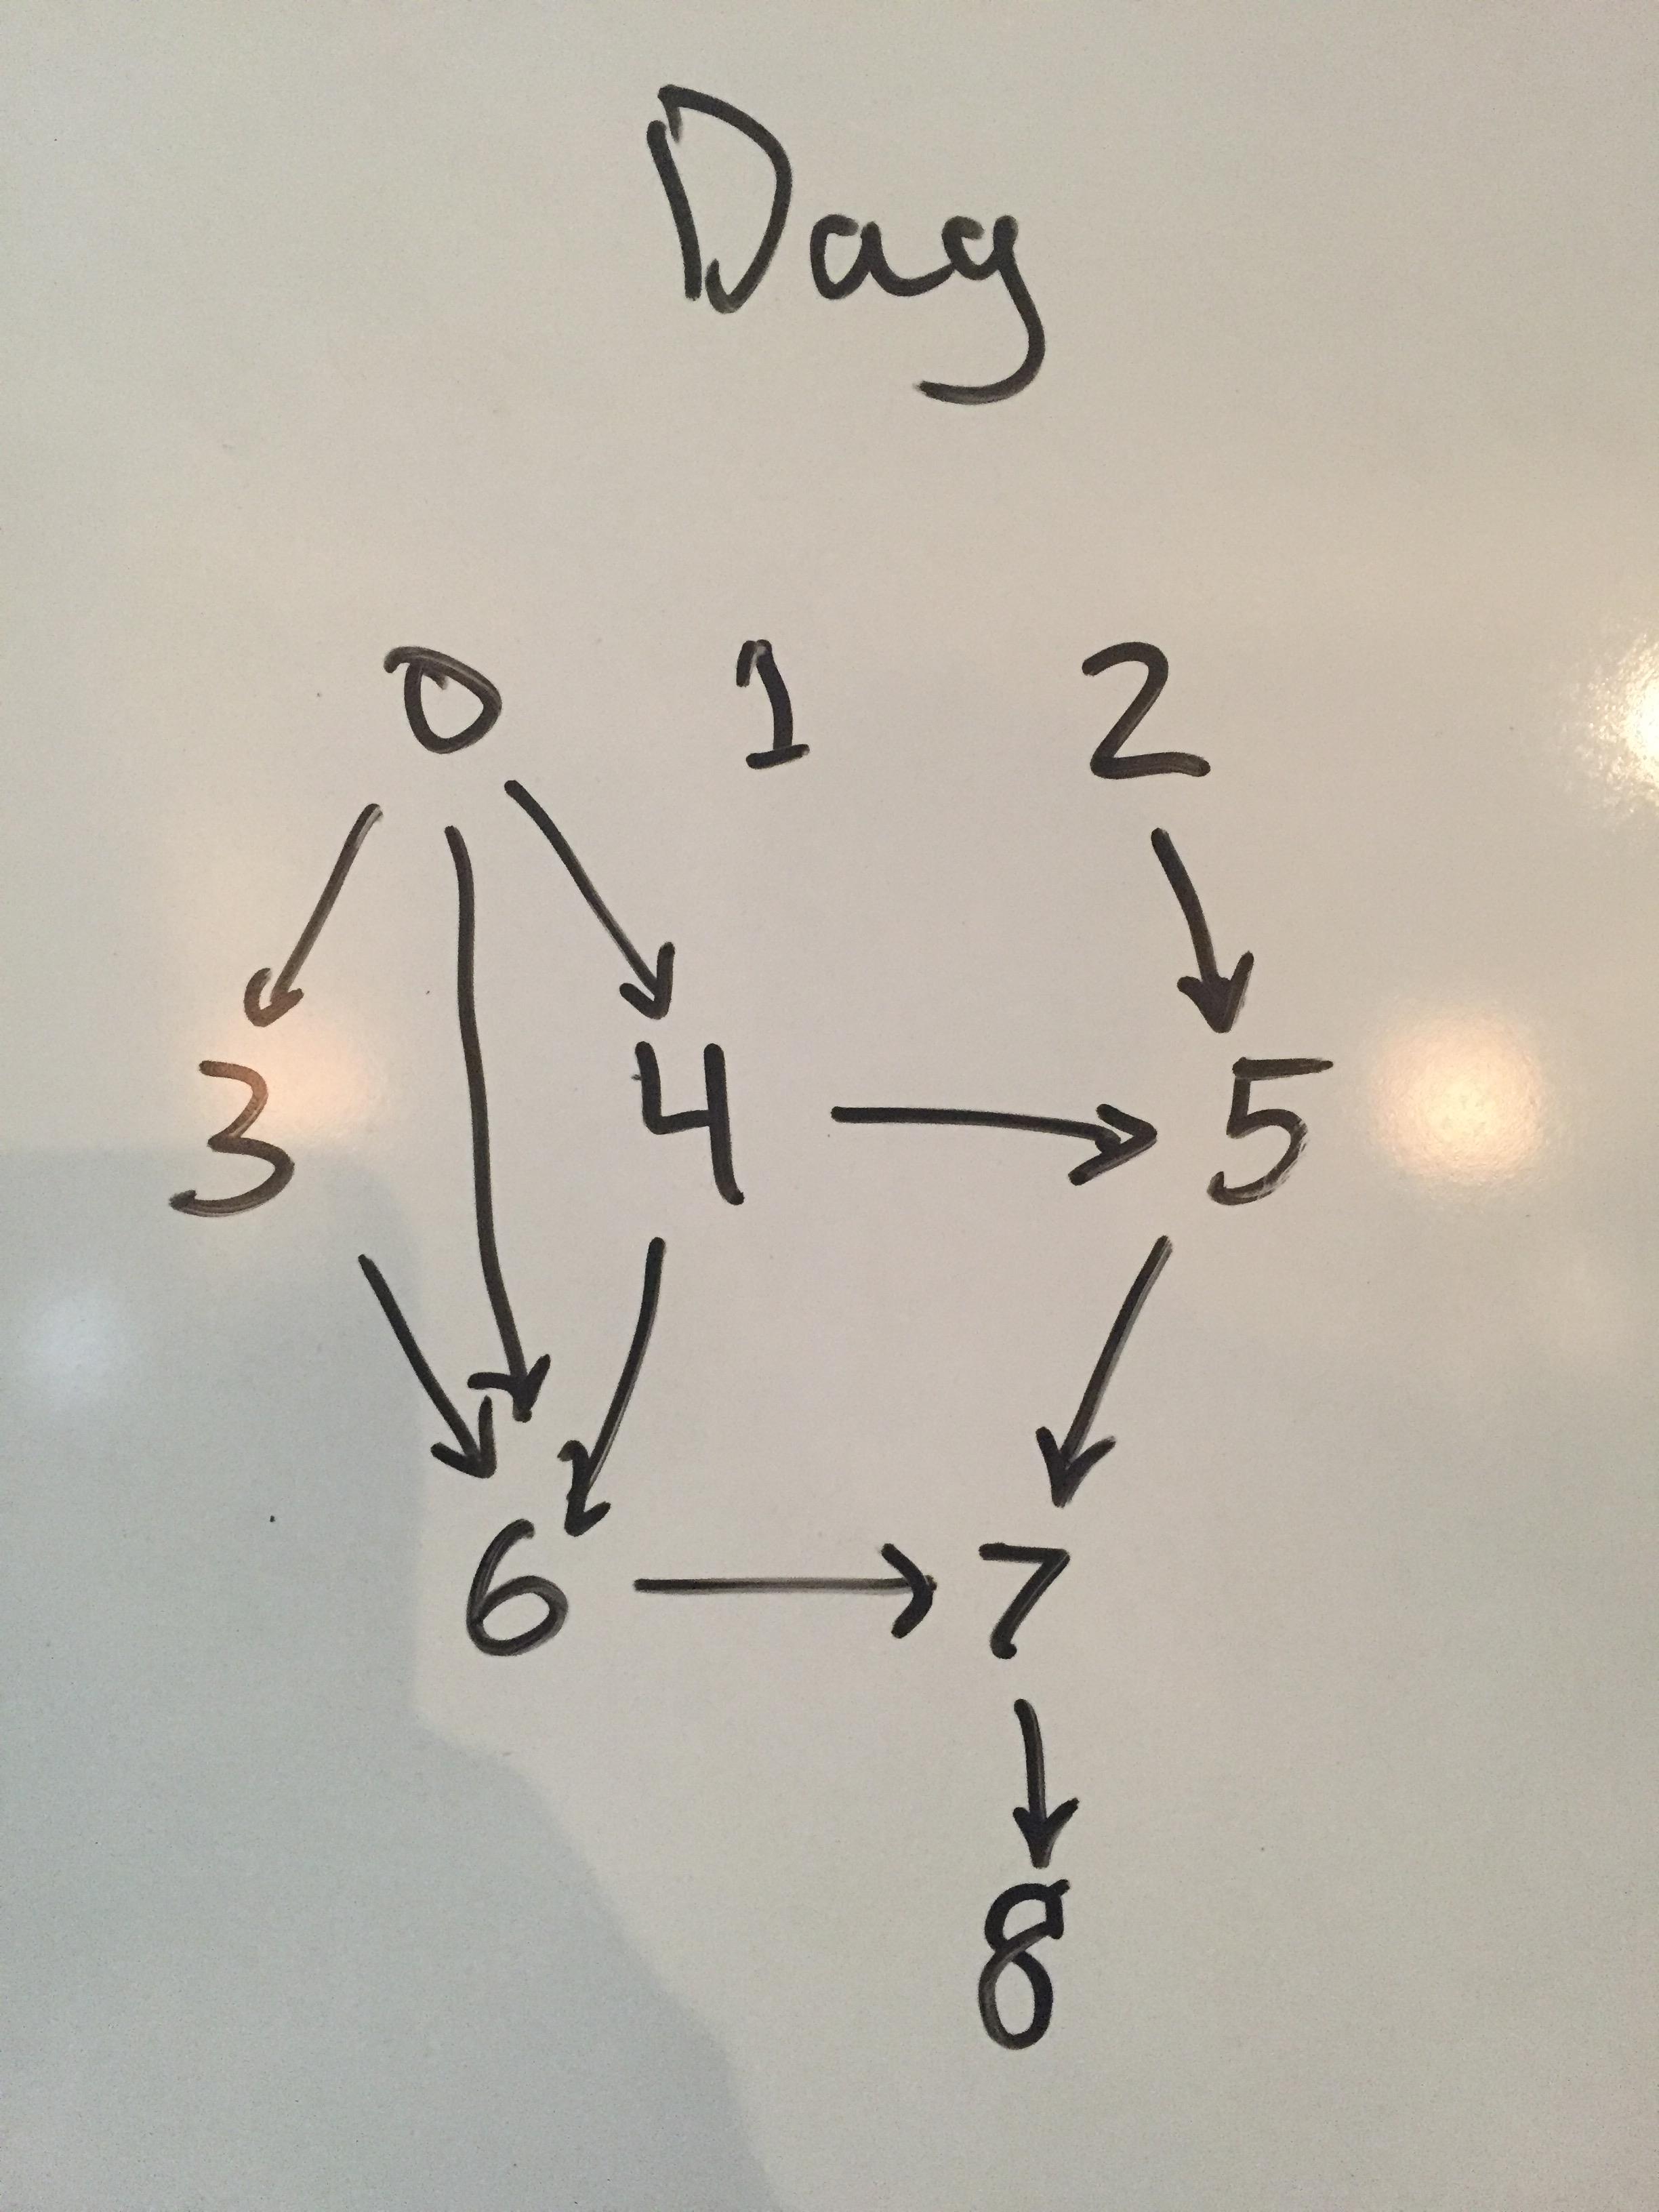 Dag
0 1 2
3 4 5
6 7
8